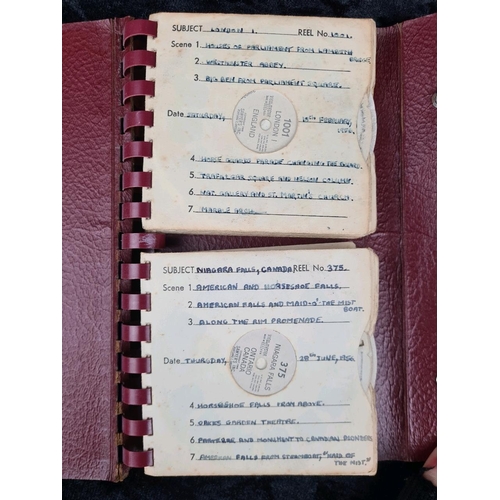 SUBJECT LONDON 1. REEL No. 1001.
Scene 1 HOUSES OF PARLIAMENT FROM LAMBETH BRIDGE
2 WESTMINSTER ABBEY.
3 BIG BEN FROM PARLIAMENT SQUARE.
Date SATURDAY, 18TH FEBRUARY, 1956.
1001
LONDON I
ENGLAND
4 HORSE GUARDS PARADE CHANGING THE GUARD.
5 TRAFALGAR SQUARE AND NELSON COLUMN.
6 NAT. GALLERY AND ST. MARTIN'S CHURCH.
7 MARBLE ARCH.
SUBJECT NIAGARA FALLS, CANADA REEL No. 375.
Scene 1 AMERICAN AND HORSESHOE FALLS.
2 AMERICAN FALLS AND MAID-O'-THE MIST BOAT.
3 ALONG THE RIM PROMENADE.
Date THURSDAY, 28TH JUNE, 1956.
375
NIAGARA FALLS
ONTARIO
CANADA
4 HORSESHOE FALLS FROM ABOVE.
5 OAKES GARDEN THEATRE.
6 PARKWAY AND MONUMENT TO CANADIAN PIONEERS
7 AMERICAN FALLS FROM STEAMBOAT, "MAID OF THE MIST."